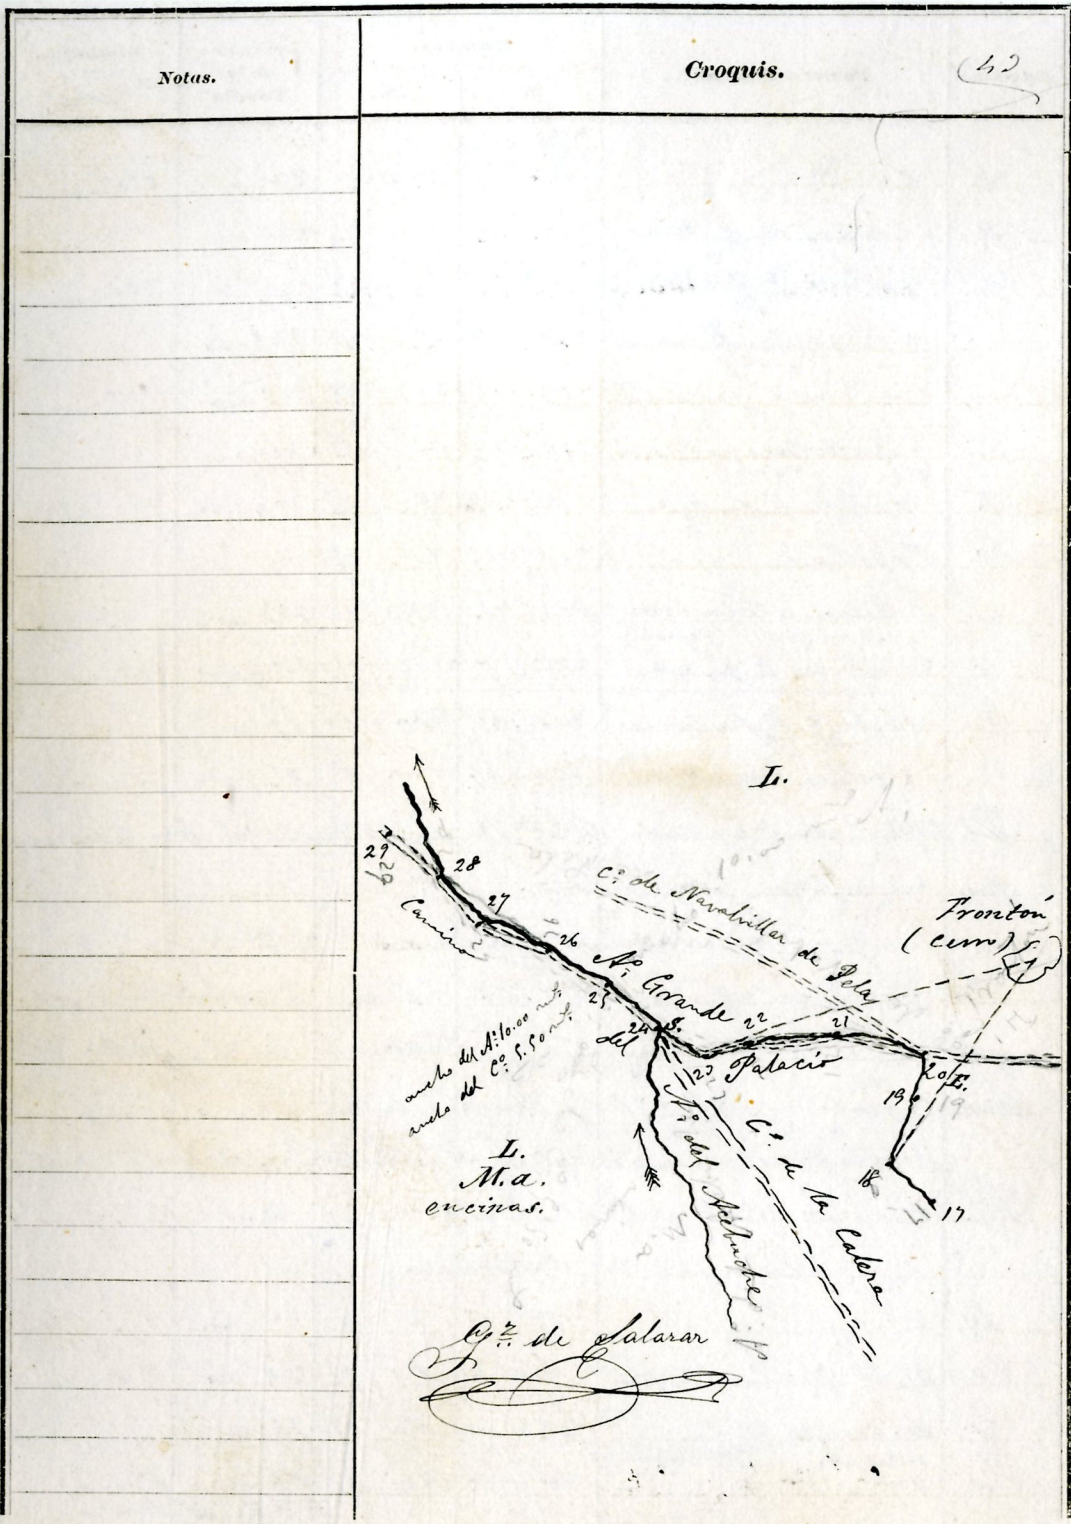 Notas.
Croquis.
L.
29
29
28
27
26
25
24
23
22
21
20
19
19
18
17
17
Camino
Cº de Navalvillar de Pela
Frontón
(cerro)
Aº Grande
del
Palacio
S.
L.
ancho del Aº 10.00 mts.
ancho del Cº 5.50 mts.
Aº del Acebuche
Cº de la Calera
L.
M.a.
encinas.
Gz. de Salazar